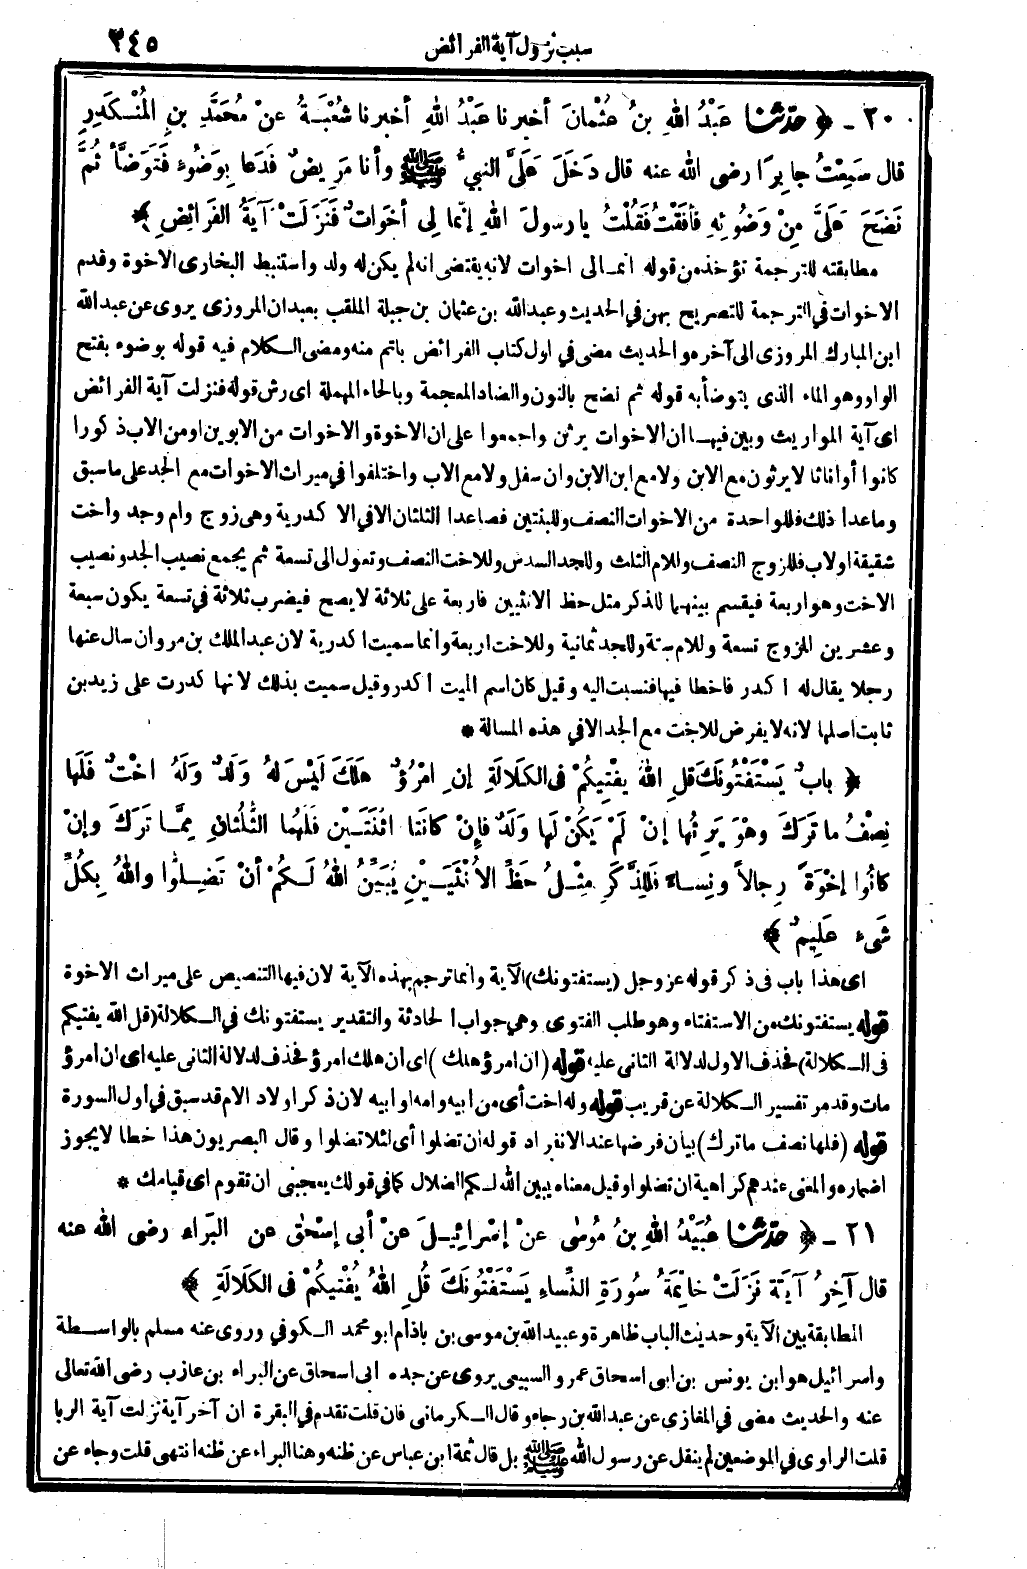 سبب نزول آية الفرائض ٢٤٥
٢٠ - ﴿ حدثنا عَبْدُ اللهِ بنُ عُثْمَانَ أخبرنا عَبْدُ اللهِ أخبرنا شُعْبَةُ عنْ مُحَمَّدِ بنِ المُنْكَدِرِ
قال سَمِعْتُ جابِرًا رضى الله عنه قال دَخَلَ عَلَىَّ النبيُّ ﷺ وأنا مَرِيضٌ فَدَعا بِوَضُوءٍ فَتَوَضَّأ ثُمَّ
نَضَحَ عَلَىَّ مِنْ وَضُوئِهِ فأفَقْتُ فَقُلْتُ يا رسولَ اللهِ إنّما لِى أخَواتٌ فَنَزَلَتْ آيَةُ الفَرائِضِ ﴾
مطابقته للترجمة تؤخذ من قوله انما لى اخوات لانه يقتضى انه لم يكن له ولد واستنبط البخارى الاخوة وقدم
الاخوات في الترجمة للتصريح بهن في الحديث وعبدالله بن عثمان بن جبلة الملقب بعبدان المروزى يروى عن عبدالله
ابن المبارك المروزى الى آخره والحديث مضى في اول كتاب الفرائض باتم منه ومضى الكلام فيه قوله بوضوء بفتح
الواو وهو الماء الذى يتوضأ به قوله ثم نضح بالنون والضاد المعجمة وبالحاء المهملة اى رش قوله فنزلت آية الفرائض
اى آية المواريث وبين فيها ان الاخوات يرثن واجمعوا على ان الاخوة والاخوات من الابوين او من الاب ذكورا
كانوا أو اناثا لا يرثون مع الابن ولا مع ابن الابن وان سفل ولا مع الاب واختلفوا في ميراث الاخوات مع الجد على ما سبق
وما عدا ذلك فللواحدة من الاخوات النصف وللبنتين فصاعدا الثلثان الا في الا كدرية وهى زوج وام وجد وأخت
شقيقة او لاب فللزوج النصف وللام الثلث وللجد السدس وللاخت النصف وتعول الى تسعة ثم يجمع نصيب الجد ونصيب
الاخت وهو اربعة فيقسم بينهما للذكر مثل حظ الانثيين فاربعة على ثلاثة لا يصح فيضرب ثلاثة في تسعة يكون سبعة
وعشرين للزوج تسعة وللام ستة وللجد ثمانية وللاخت اربعة وانما سميت اكدرية لان عبد الملك بن مروان سال عنها
رجلا يقال له اكدر فاخطا فيها فنسبت اليه وقيل كان اسم الميت اكدر وقيل سميت بذلك لانها كدرت على زيد بن
ثابت اصلها لانه لا يفرض للاخت مع الجد الا في هذه المسالة *
﴿ بابٌ يَسْتَفْتُونَكَ قلِ اللهُ يفْتِيكُمْ فى الكَلالَةِ إنِ امْرُؤٌ هَلَكَ لَيْسَ لهُ ولَدٌ ولَهُ اخْتٌ فَلَها
نِصْفُ ما تَرَكَ وهْوَ يَرِثُها إنْ لَمْ يَكُنْ لَها ولَدٌ فإنْ كانَتا اثْنَتَيْنِ فلَهُما الثُّلُثانِ مِمَّا تَرَكَ وإنْ
كانُوا إخْوَةً رِجالاً ونِساءً فَلِلذَّكَرِ مِثْلُ حَظِّ الأُنْثَيَيْنِ يُبَيِّنُ اللهُ لَكُمْ أنْ تَضِلُّوا واللهُ بِكُلِّ
شَىءٍ عَلِيمٌ ﴾
اى هذا باب فى ذكر قوله عز وجل (يستفتونك) الآية وانما ترجم بهذه الآية لان فيها التنصيص على ميراث الاخوة
قوله يستفتونك من الاستفتاء وهو طلب الفتوى وهي جواب الحادثة والتقدير يستفتونك في الكلالة (قل الله يفتيكم
فى الكلالة) فحذف الاول لدلالة الثانى عليه قوله (ان امرؤ هلك) اى ان هلك امرؤ فحذف لدلالة الثانى عليه اى ان امرؤ
مات وقد مر تفسير الكلالة عن قريب قوله وله اخت أى من ابيه وامه او ابيه لان ذكر اولاد الام قد سبق في اول السورة
قوله (فلها نصف ما ترك) بيان فرضها عند الانفراد قوله ان تضلوا أى لئلا تضلوا وقال البصريون هذا خطا لا يجوز
اضماره والمعنى عندهم كراهية ان تضلوا وقيل معناه يبين الله لكم الضلال كما في قولك يعجبنى ان تقوم اى قيامك *
٢١ - ﴿ حدثنا عُبَيْدُ اللهِ بنُ مُوسٰى عنْ إسْرائِيلَ عَنْ أبى إسْحٰق عن البَراءِ رضى الله عنه
قال آخِرُ آيَةٍ نَزَلَتْ خاتِمَةُ سُورَةِ النِّساءِ يَسْتَفْتُونَكَ قُلِ اللهُ يُفْتِيكُمْ فى الكَلالَةِ ﴾
المطابقة بين الآية وحديث الباب ظاهرة وعبيد الله بن موسى بن باذام ابو محمد الكوفي وروى عنه مسلم بالواسطة
واسرائيل هو ابن يونس بن ابى اسحاق عمرو السبيعى يروى عن جده ابى اسحاق عن البراء بن عازب رضى الله تعالى
عنه والحديث مضى في المغازى عن عبدالله بن رجاء وقال الكرمانى فان قلت تقدم في البقرة ان آخر آية نزلت آية الربا
قلت الراوى في الموضعين لم ينقل عن رسول الله ﷺ بل قال ثمة ابن عباس عن ظنه وهنا البراء عن ظنه انتهى قلت وجاء عن